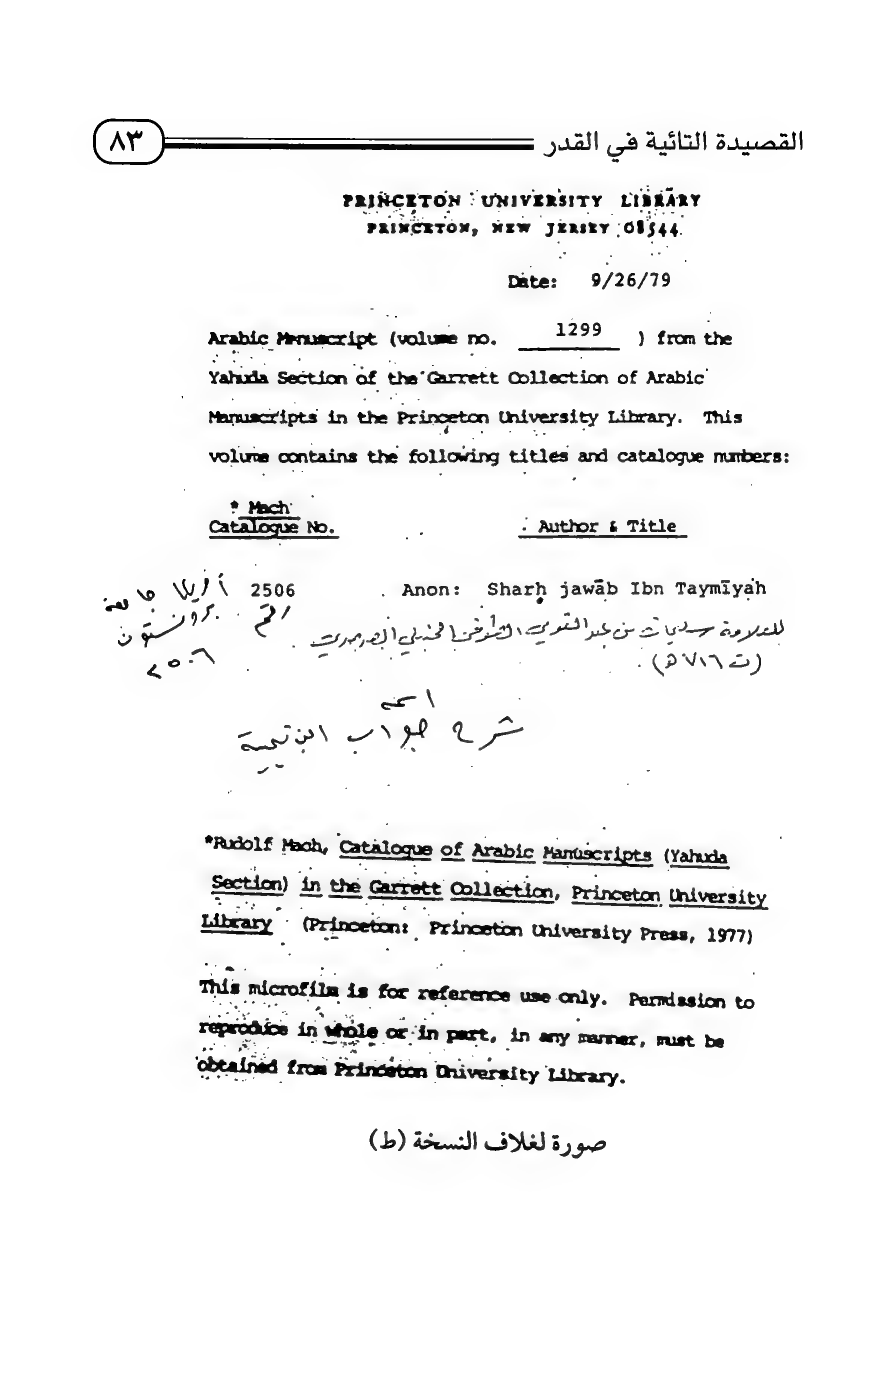 القصيدة التائية في القدر
٨٣
PRINCETON UNIVERSITY LIBRARY
PRINCETON, NEW JERSEY 08544
Date: 9/26/79
Arabic Manuscript (volume no. 1299 ) from the
Yahuda Section of the Garrett Collection of Arabic
Manuscripts in the Princeton University Library. This
volume contains the following titles and catalogue numbers:
* Mach
Catalogue No. Author & Title
2506 Anon: Sharḥ jawāb Ibn Taymīyah
أمريكا جامعة
برنستون
الرقم
٢٥٠٦
للعلامة سليمان بن عبد القوي الطوفي الحنبلي الصرصري
(ت ٧١٦ هـ).
اسمه
شرح جواب ابن تيمية
*Rudolf Mach, Catalogue of Arabic Manuscripts (Yahuda
Section) in the Garrett Collection, Princeton University
Library (Princeton: Princeton University Press, 1977)
This microfilm is for reference use only. Permission to
reproduce in whole or in part, in any manner, must be
obtained from Princeton University Library.
صورة لغلاف النسخة (ط)